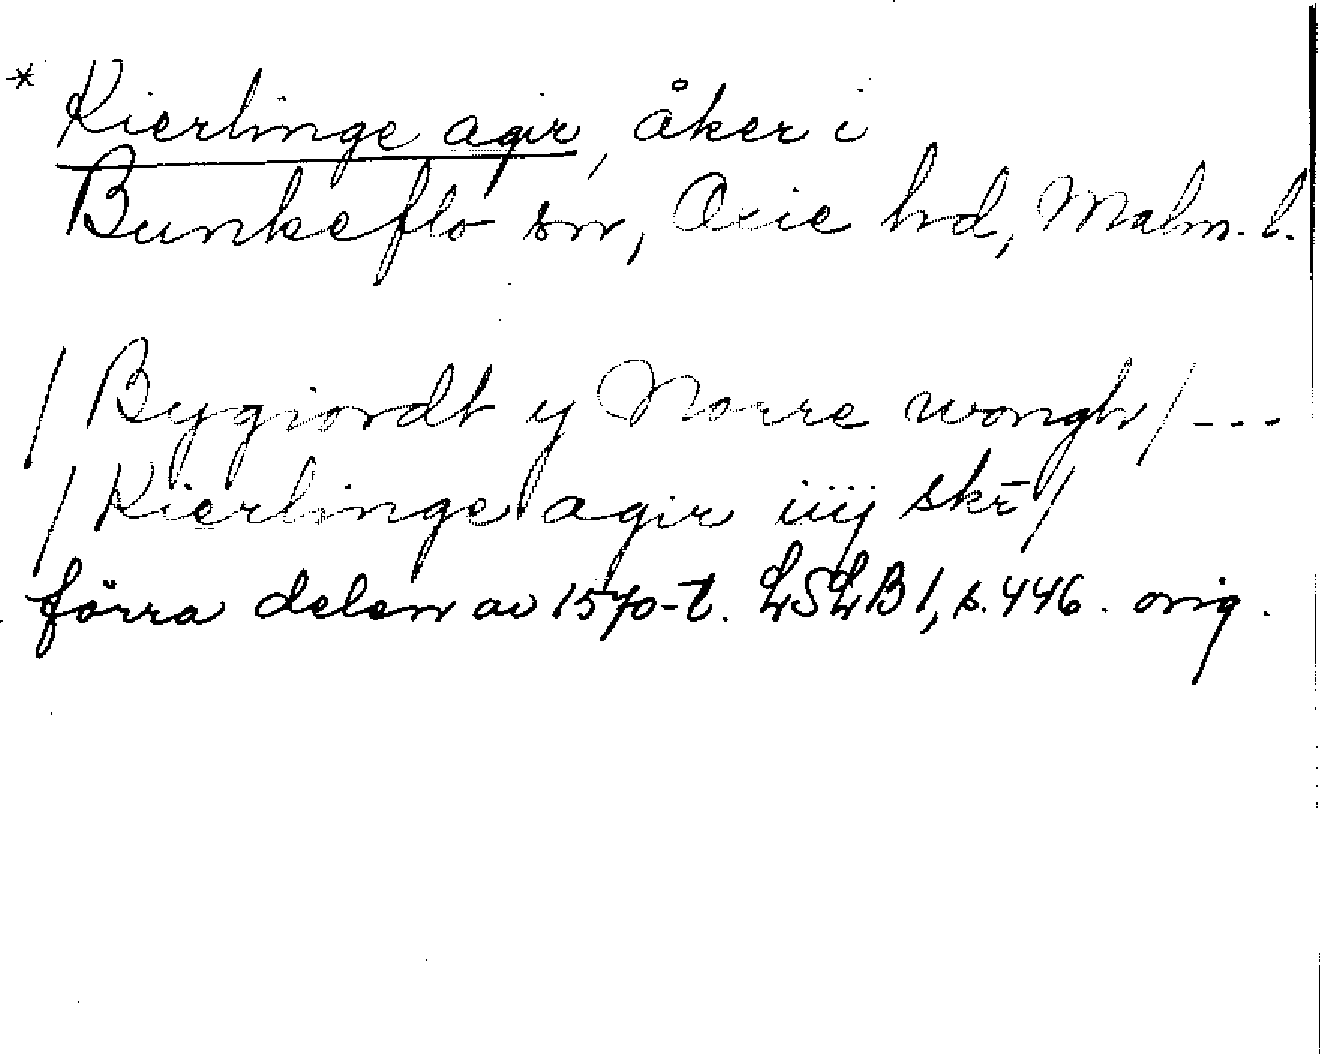 * Kierlinge agir, åker i
Bunkeflo sn, Oxie hd, Malm. l.
/ Bygiordt y Norre wongh / ---
/ Kierlinge agir iiij skr̄ /
förra delen av 1570-t. LSLB 1, s. 446. orig.